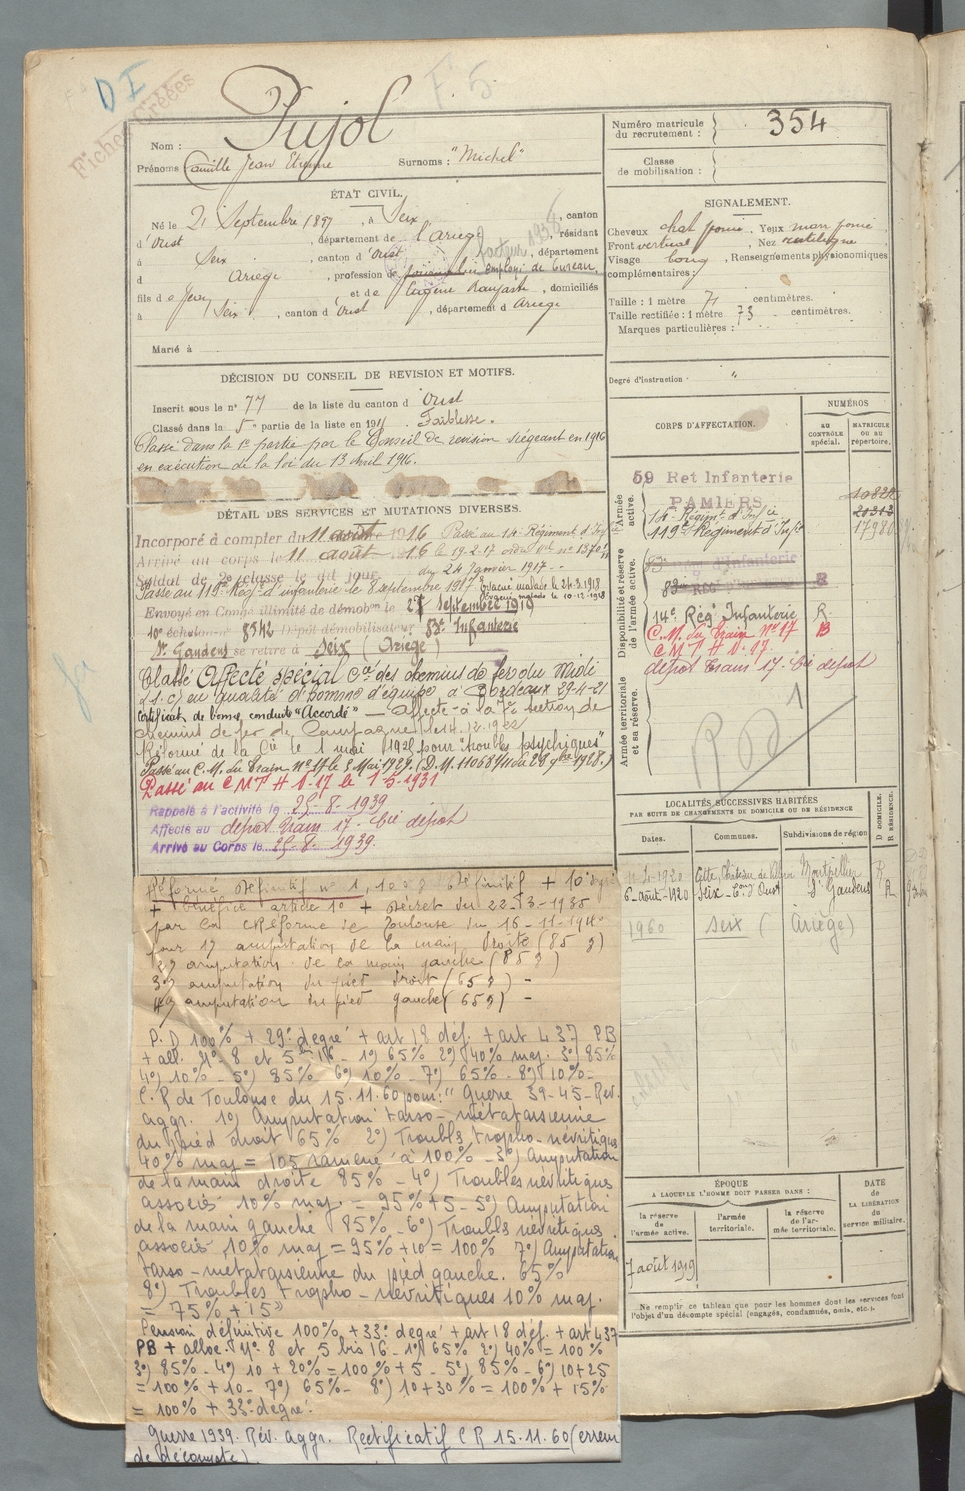 D I
F 5
Fiches Créées
Nom : Pujol
Prénoms : Camille Jean Etienne Surnoms : "Michel"
ÉTAT CIVIL.
Né le 21 Septembre 1897, à Seix, canton
d'Oust, département de l'Ariège, résidant
à Seix, canton d'Oust, département
d Ariège, profession de employé de bureau
facteur 1938
fils de Jean et de Eugénie, domiciliés
à Seix, canton d'Oust, département d Ariège
Marié à
DÉCISION DU CONSEIL DE REVISION ET MOTIFS.
Inscrit sous le n° 77 de la liste du canton d Oust
Classé dans la 5e partie de la liste en 191 Faiblesse.
Classé dans la 1e partie par le Conseil de revision siégeant en 1916
en exécution de la loi du 13 Avril 1916.
DÉTAIL DES SERVICES ET MUTATIONS DIVERSES.
Incorporé à compter du 11 août 1916 Passé au 14e Régiment d'Inf
Arrivé au corps le 11 août 1916 le 19-2-17
Soldat de 2e classe le dit jour du 24 Janvier 1917
Passé au 119e Régt d'infanterie le 8 septembre 1917 Evacué malade le 24-3-1918
malade le 10-12-1918
Envoyé en Congé illimité de démobon le 27 Septembre 1919
10e échelon n° 8542 Dépôt démobilisateur 83e Infanterie
St Gaudens se retire à Seix (Ariège)
Classé Affecté spécial Cie des chemins de fer du Midi
(S.C) en qualité d'homme d'équipe à Bordeaux 29-4-21
Certificat de bonne conduite "Accordé" — Affecté à la 7e section de
chemins de fer de Campagne le 14.12.1922
Réformé de la Cie le 1 mai 1928 pour "troubles psychiques"
Passé au C.M. du Train N° 17 le 3 Mai 1929. (D.M. 11068
Passé au C M T H N° 17 le 1-5-1931
Rappelé à l'activité le 25-8-1939
Affecté au dépôt Train 17 - Cie dépôt
Arrivé au Corps le 25-8-1939.
Réformé Définitif n° 1, 100% Définitif + 10°
+ bénéfice article 10 + décret du 22-3-1935
par la C Réforme de Toulouse du 16-11-1940
pour 1°) amputation de la main droite (85 %)
2°) amputation de la main gauche (85 %)
3°) amputation du pied droit (65 %) -
4°) amputation du pied gauche (65 %) -
P.D 100% + 29°degré + art 18 déf. + art L 37 PB
+ all. N° 8 et 5 bis 16 - 1°) 65% 2°) 40% maj. 3°) 85%
4°) 10% - 5°) 85% 6°) 10% - 7°) 65% - 8°) 10% -
C.R de Toulouse du 15.11.60 pour: " Guerre 39-45 - Rev.
aggr. 1°) Amputation tarso-métatarsienne
du pied droit 65% 2°) Troubles tropho-névritiques
40% maj = 105 ramené à 100% - 3°) Amputation
de la main droite 85% - 4°) Troubles névritiques
associés 10% maj = 95% + 5 - 5°) Amputation
de la main gauche 85% - 6°) Troubles névritiques
associés 10% maj = 95% + 10 = 100% 7°) Amputation
tarso-métatarsienne du pied gauche. 65%
8°) Troubles tropho-nevritiques 10% maj.
= 75% + 15"
Pension définitive 100% + 33° degré + art 18 déf. + art L37
PB + alloc. N° 8 et 5 bis 16 - 1°) 65% 2°) 40% = 100%
3°) 85% - 4°) 10 + 20% = 100% + 5 - 5°) 85% - 6°) 10 + 25
= 100% + 10 - 7°) 65% - 8°) 10 + 30% = 100% + 15%
= 100% + 33°degré.
Guerre 1939. Rév. aggr. Rectificatif C R 15.11.60 (erreur
de décompte)
Numéro matricule
du recrutement : 354
Classe
de mobilisation :
SIGNALEMENT.
Cheveux chat foncé, Yeux marr foncé
Front vertical, Nez rectiligne
Visage long, Renseignements physionomiques
complémentaires :
Taille : 1 mètre 71 centimètres.
Taille rectifiée : 1 mètre 73 centimètres.
Marques particulières :
Degré d'instruction : "
CORPS D'AFFECTATION.
NUMÉROS
AU CONTRÔLE spécial.
MATRICULE OU AU répertoire.
Armée active.
59 Ret Infanterie
PAMIERS
14e Régimt d'Infie
119e Régiment d'Inft 17980
Disponibilité et réserve de l'armée active.
83e Rég d'Infanterie
14e Rég Infanterie R.
C.M. du Train N° 17 B
C M T H N° 17
dépôt train 17 - Cie dépôt
Armée territoriale et sa réserve.
RD 1
LOCALITÉS SUCCESSIVES HABITÉES
PAR SUITE DE CHANGEMENTS DE DOMICILE OU DE RÉSIDENCE
Dates. Communes. Subdivisions de région D DOMICILE. R RÉSIDENCE.
1920 Cette, Montpellier R
6-août-1920 Seix - Con d'Oust St Gaudens R
1960 Seix (Ariège)
ÉPOQUE
A LAQUELLE L'HOMME DOIT PASSER DANS :
la réserve de l'armée active.
l'armée territoriale.
la réserve de l'armée territoriale.
DATE de LA LIBÉRATION du service militaire.
7 août 1919
Ne remplir ce tableau que pour les hommes dont les services font
l'objet d'un décompte spécial (engagés, condamnés, omis, etc.).